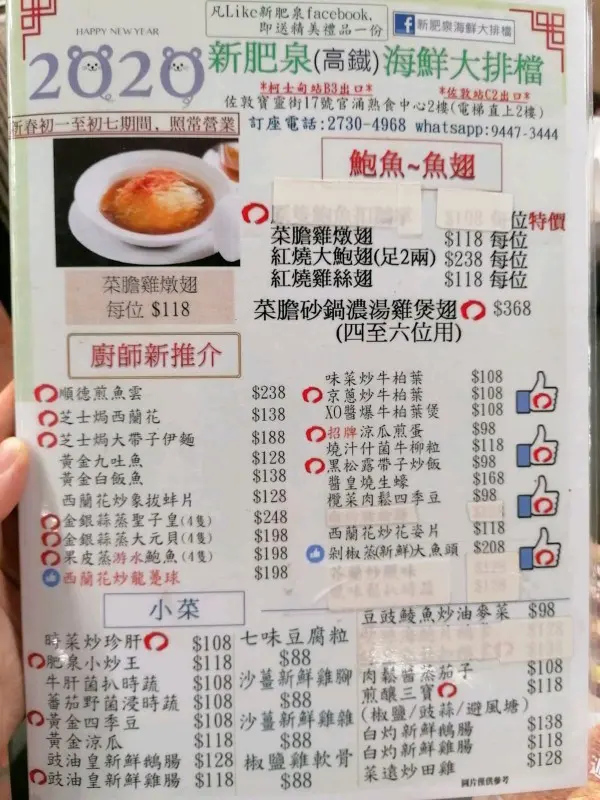 凡Like新肥泉facebook,
即送精美禮品一份
新肥泉海鮮大排檔
HAPPY NEW YEAR
2020
新肥泉(高鐵)海鮮大排檔
*柯士甸站B3出口*
*佐敦站C2出口*
佐敦寶靈街17號官涌熟食中心2樓(電梯直上2樓)
新春初一至初七期間, 照常營業
訂座電話:2730-4968 whatsapp:9447-3444
菜膽雞燉翅
每位 $118
鮑魚~魚翅
位特價
菜膽雞燉翅 $118 每位
紅燒大鮑翅(足2兩) $238 每位
紅燒雞絲翅 $118 每位
菜膽砂鍋濃湯雞煲翅 $368
(四至六位用)
廚師新推介
順德煎魚雲 $238
芝士焗西蘭花 $138
芝士焗大帶子伊麵 $188
黃金九吐魚 $128
黃金白飯魚 $138
西蘭花炒象拔蚌片 $128
金銀蒜蒸聖子皇(4隻) $248
金銀蒜蒸大元貝(4隻) $198
果皮蒸游水鮑魚(4隻) $198
西蘭花炒龍躉球 $198
味菜炒牛柏葉 $108
京蔥炒牛柏葉 $108
XO醬爆牛柏葉煲 $108
招牌涼瓜煎蛋 $98
燒汁什菌牛柳粒 $118
黑松露帶子炒飯 $98
醬皇燒生蠔 $168
欖菜肉鬆四季豆 $98
西蘭花炒花姿片 $118
剁椒蒸(新鮮)大魚頭 $208
小菜
時菜炒珍肝 $108
肥泉小炒王 $118
牛肝菌扒時蔬 $108
番茄野菌浸時蔬 $108
黃金四季豆 $108
黃金涼瓜 $118
豉油皇新鮮鵝腸 $128
豉油皇新鮮雞腸 $118
七味豆腐粒
$88
沙薑新鮮雞腳
$88
沙薑新鮮雞雜
$88
椒鹽雞軟骨
$88
豆豉鯪魚炒油麥菜 $98
肉鬆醬蒸茄子 $108
煎釀三寶 $118
(椒鹽/豉蒜/避風塘)
白灼新鮮鵝腸 $138
白灼新鮮雞腸 $118
菜遠炒田雞 $128
圖片僅供參考